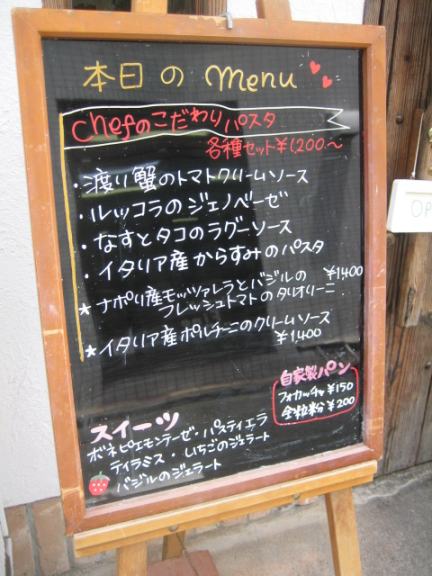 本日の menu
chefのこだわりパスタ
各種セット¥1,200～
・渡り蟹のトマトクリームソース
・ルッコラのジェノベーゼ
・なすとタコのラグーソース
・イタリア産からすみのパスタ
★ナポリ産モッツァレラとバジルの ¥1,400
フレッシュトマトのタリオリーニ
★イタリア産ポルチーニのクリームソース
¥1,400
自家製パン
フォカッチャ ¥150
全粒粉 ¥200
スイーツ
ボネピエモンテーゼ・パスティエラ
ティラミス・いちごのジェラート
バジルのジェラート
OP